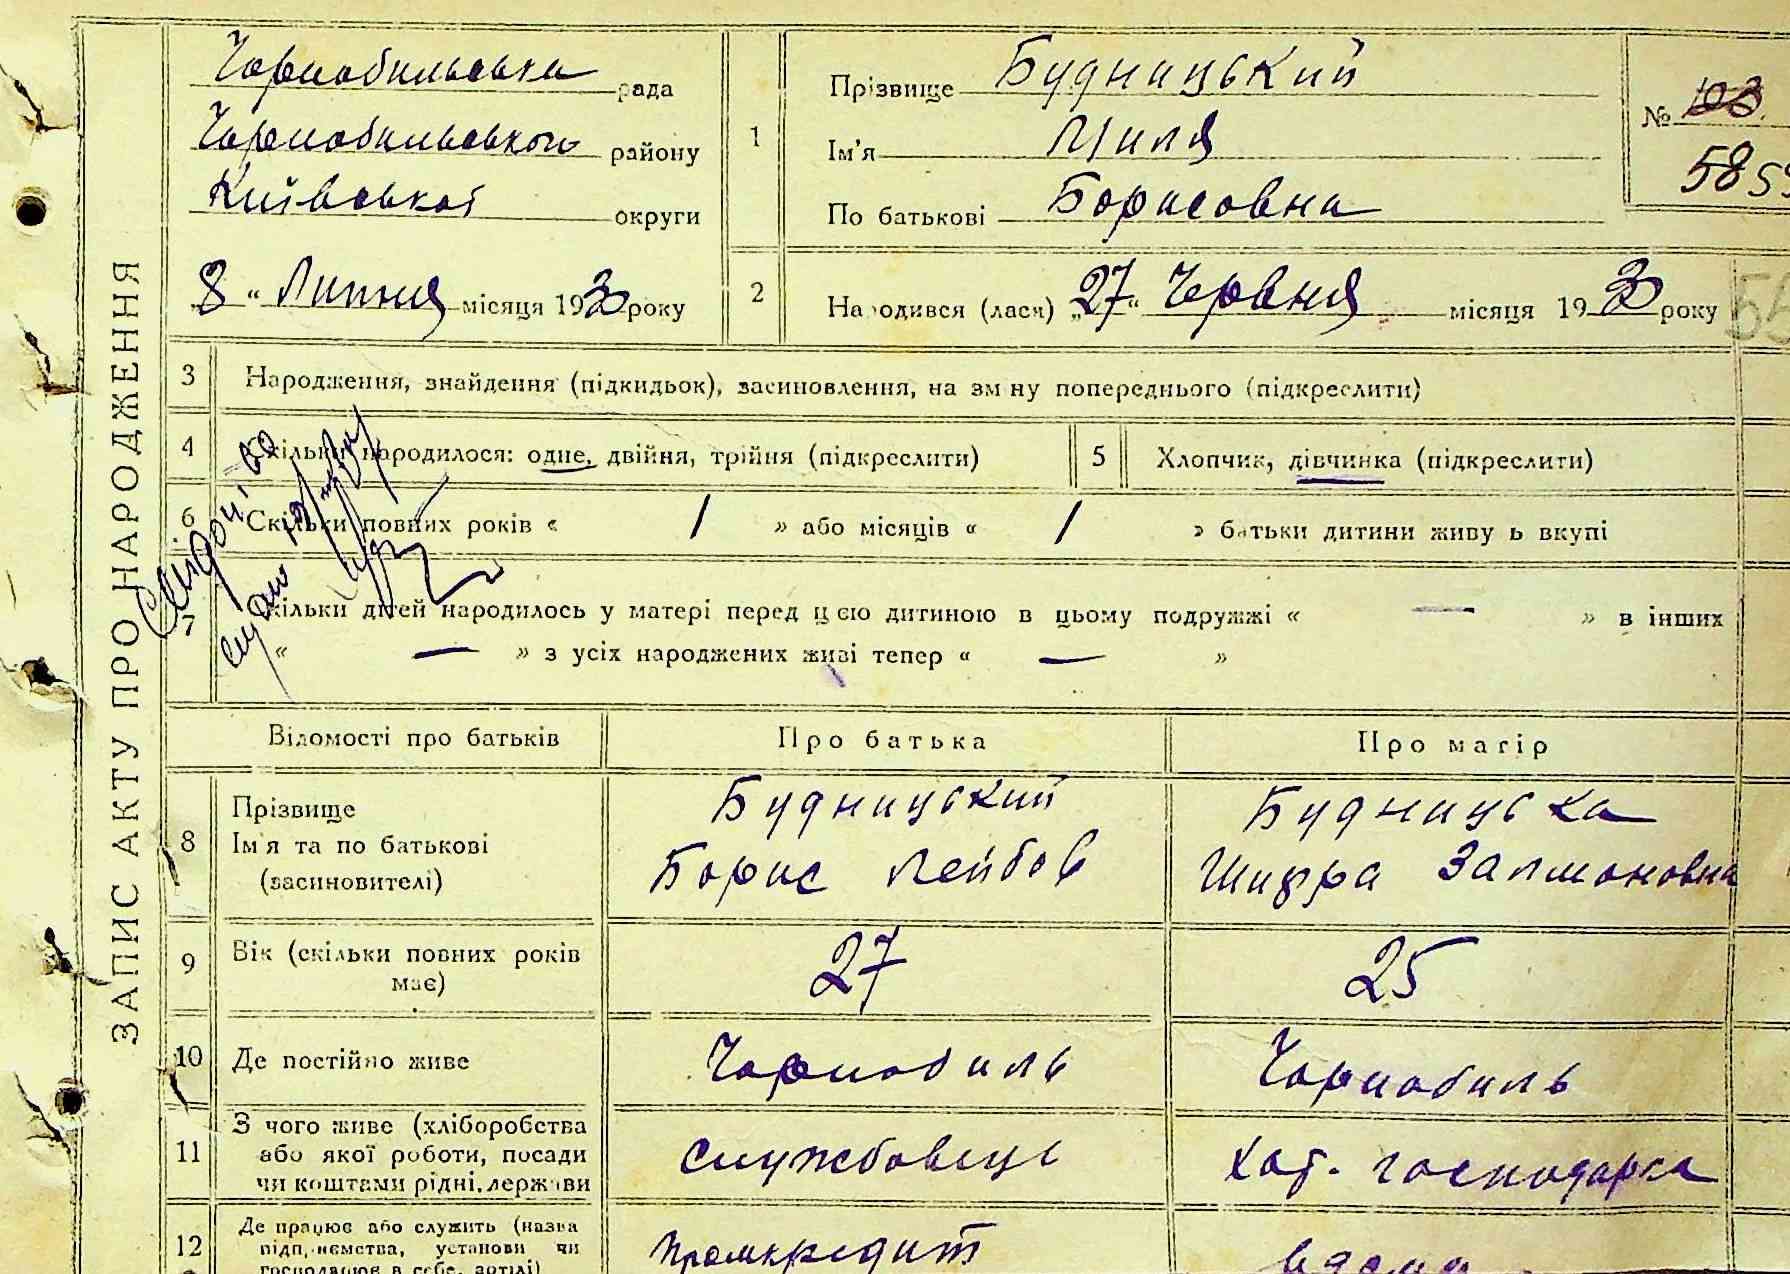 ЗАПИС АКТУ ПРО НАРОДЖЕННЯ
Чорнобильська рада
Чорнобильського району
Київської округи
8 “ Липня місяця 1930 року
1
Прізвище Будницький
Ім’я Миля
По батькові Борисовна
№ 103.
58
2
Народився (лася) „27“ Червня місяця 1930 року
3
Народження, знайдення (підкидьок), засиновлення, на зміну попереднього (підкреслити)
4
Скільки народилося: одне, двійня, трійня (підкреслити)
5
Хлопчик, дівчинка (підкреслити)
6
Скільки повних років « / » або місяців « / » батьки дитини живуть вкупі
7
Скільки дітей народилось у матері перед цією дитиною в цьому подружжі « — » в інших
« — » з усіх народжених живі тепер « — »
Відомості про батьків
Про батька
Про матір
8
Прізвище
Ім’я та по батькові
(засиновителі)
Будницький
Борис Лейбов
Будницька
Шифра Залмоновна
9
Вік (скільки повних років
має)
27
25
10
Де постійно живе
Чорнобиль
Чорнобиль
11
З чого живе (хліборобства
або якої роботи, посади
чи коштами рідні, держави
службовець
хат. господарка
12
Де працює або служить (назва
підприємства, установи чи
господарює в себе, артілі)
Промкредит
вдома